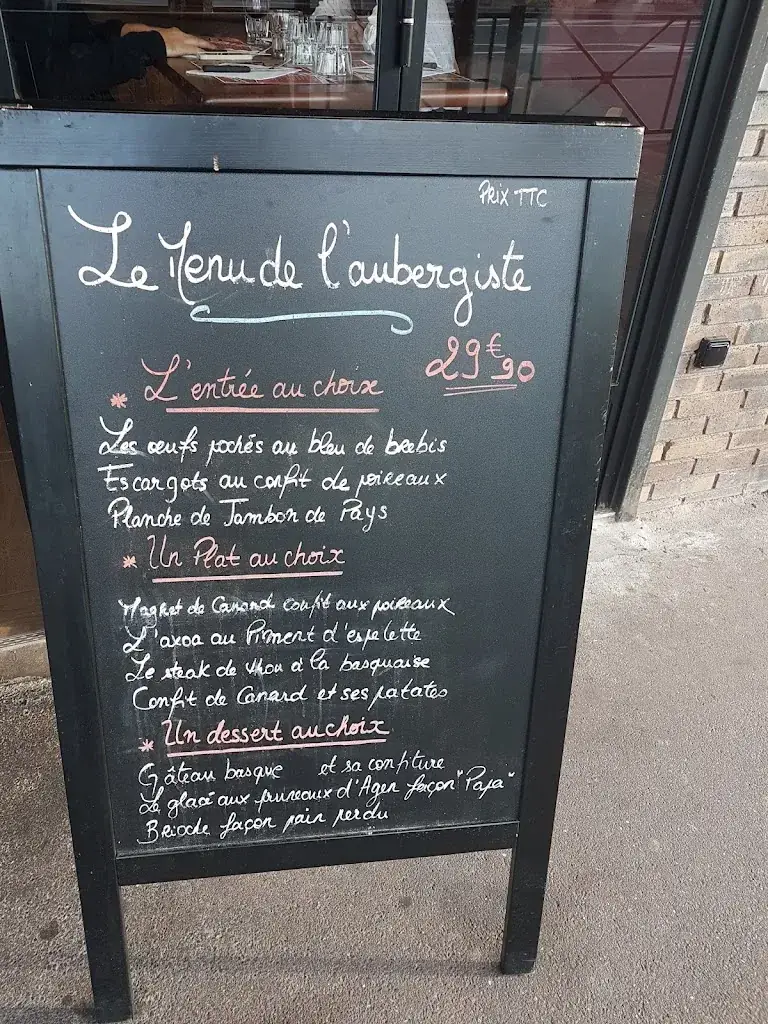 Prix TTC
Le Menu de l'aubergiste
29€90
* L'entrée au choix
Les œufs pochés au bleu de brebis
Escargots au confit de poireaux
Planche de Jambon de Pays
* Un Plat au choix
Magret de Canard confit aux poireaux
L'axoa au Piment d'espelette
Le steak de thon à la basquaise
Confit de Canard et ses patates
* Un dessert au choix
Gâteau basque et sa confiture
Le glacé aux pruneaux d'Agen façon "Papa"
Brioche façon pain perdu